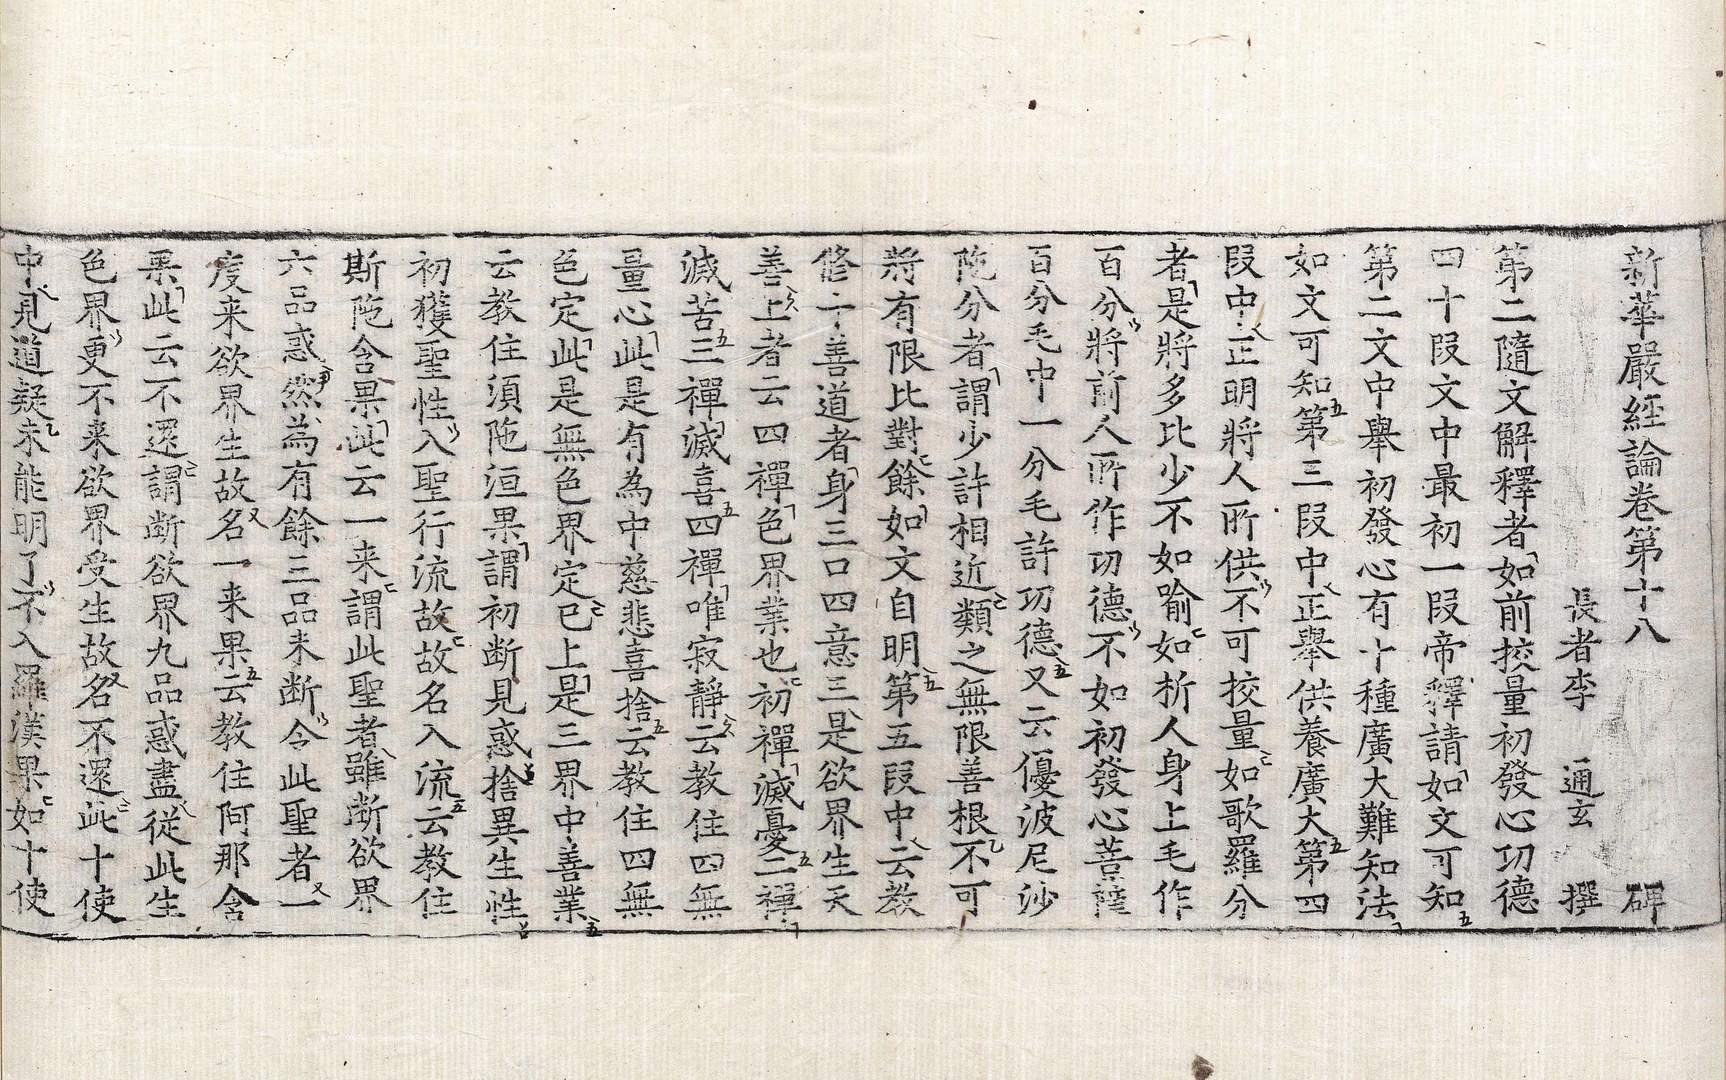 新華嚴經論卷第十八 碑
長者李 通玄 撰
第二隨文解釋者如前挍量初發心功德
四十段文中最初一段帝釋請如文可知
第二文中舉初發心有十種廣大難知法
如文可知第三段中正舉供養廣大第四
段中正明將人所供不可挍量如歌羅分
者是將多比少不如喻如析人身上毛作
百分將前人所作功德不如初發心菩薩
百分毛中一分毛許功德又云優波尼沙
陁分者謂少許相近類之無限善根不可
將有限比對餘如文自明第五段中云教
修十善道者身三口四意三是欲界生天
善上者云四禪色界業也初禪滅憂二禪
滅苦三禪滅喜四禪唯寂靜云教住四無
量心此是有為中慈悲喜捨云教住四無
色定此是無色界定已上是三界中善業
云教住須陁洹果謂初断見惑捨異生性
初獲聖性入聖行流故故名入流云教住
斯陁含果此云一来謂此聖者雖断欲界
六品惑然為有餘三品未断令此聖者一
度来欲界生故名一来果云教住阿那含
果此云不還謂断欲界九品惑盡從此生
色界更不来欲界受生故名不還此十使
中見道疑未能明了不入羅漢果如十使